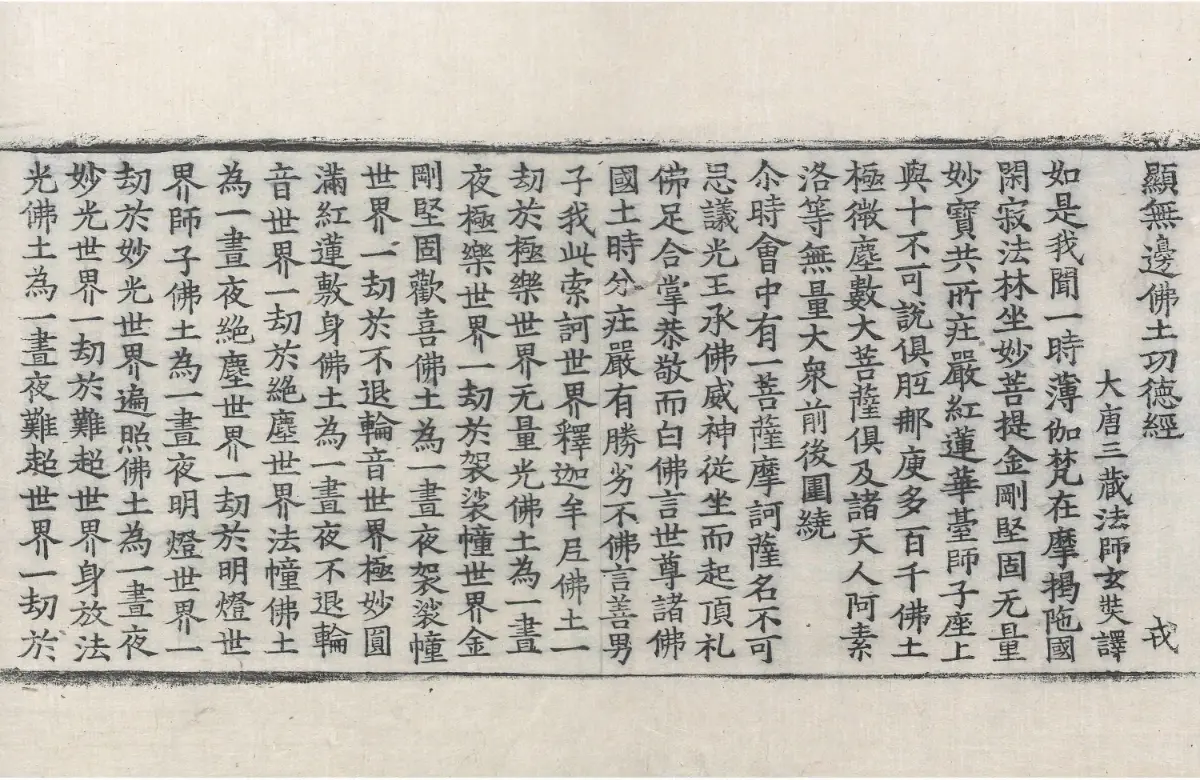 顯無邊佛土功徳經　戎
大唐三藏法師玄奘譯
如是我聞一時薄伽梵在摩揭陁國
閑寂法林坐妙菩提金剛堅固无量
妙寶共所莊嚴紅蓮華臺師子座上
與十不可說俱胝那庾多百千佛土
極微塵數大菩薩俱及諸天人阿素
洛等無量大衆前後圍繞
尒時會中有一菩薩摩訶薩名不可
思議光王承佛威神從坐而起頂礼
佛足合掌恭敬而白佛言世尊諸佛
國土時分莊嚴有勝劣不佛言善男
子我此索訶世界釋迦牟尼佛土一
劫於極樂世界无量光佛土為一晝
夜極樂世界一劫於袈裟幢世界金
剛堅固歡喜佛土為一晝夜袈裟幢
世界一劫於不退輪音世界極妙圓
滿紅蓮敷身佛土為一晝夜不退輪
音世界一劫於絶塵世界法幢佛土
為一晝夜絶塵世界一劫於明燈世
界師子佛土為一晝夜明燈世界一
劫於妙光世界遍照佛土為一晝夜
妙光世界一劫於難超世界身放法
光佛土為一晝夜難超世界一劫於